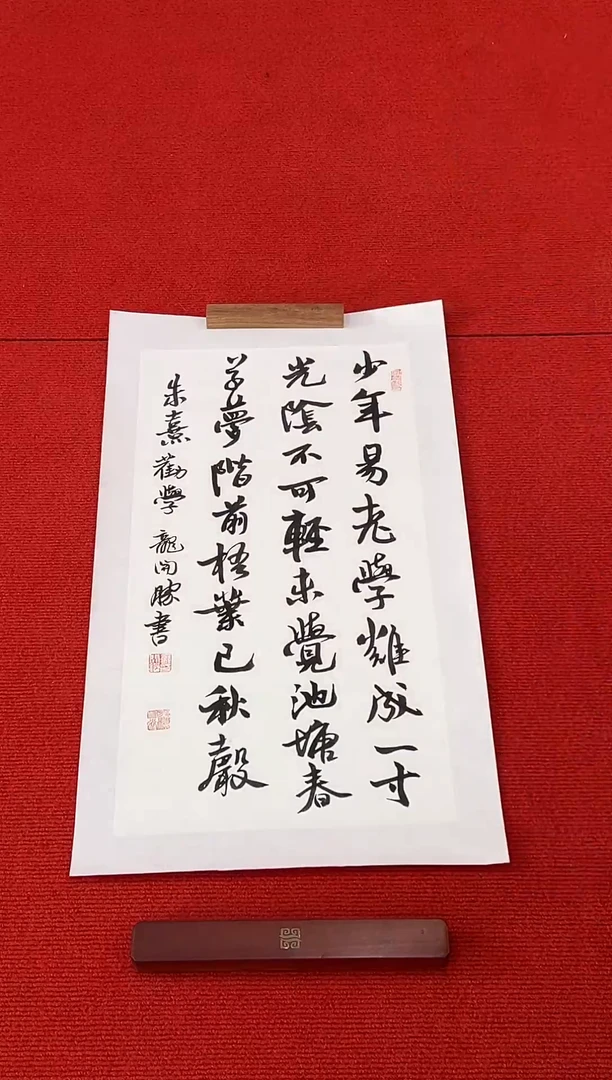 少年易老學難成一寸
光陰不可輕未覺池塘春
草夢階前梧葉已秋聲
朱熹勸學 龍開勝書